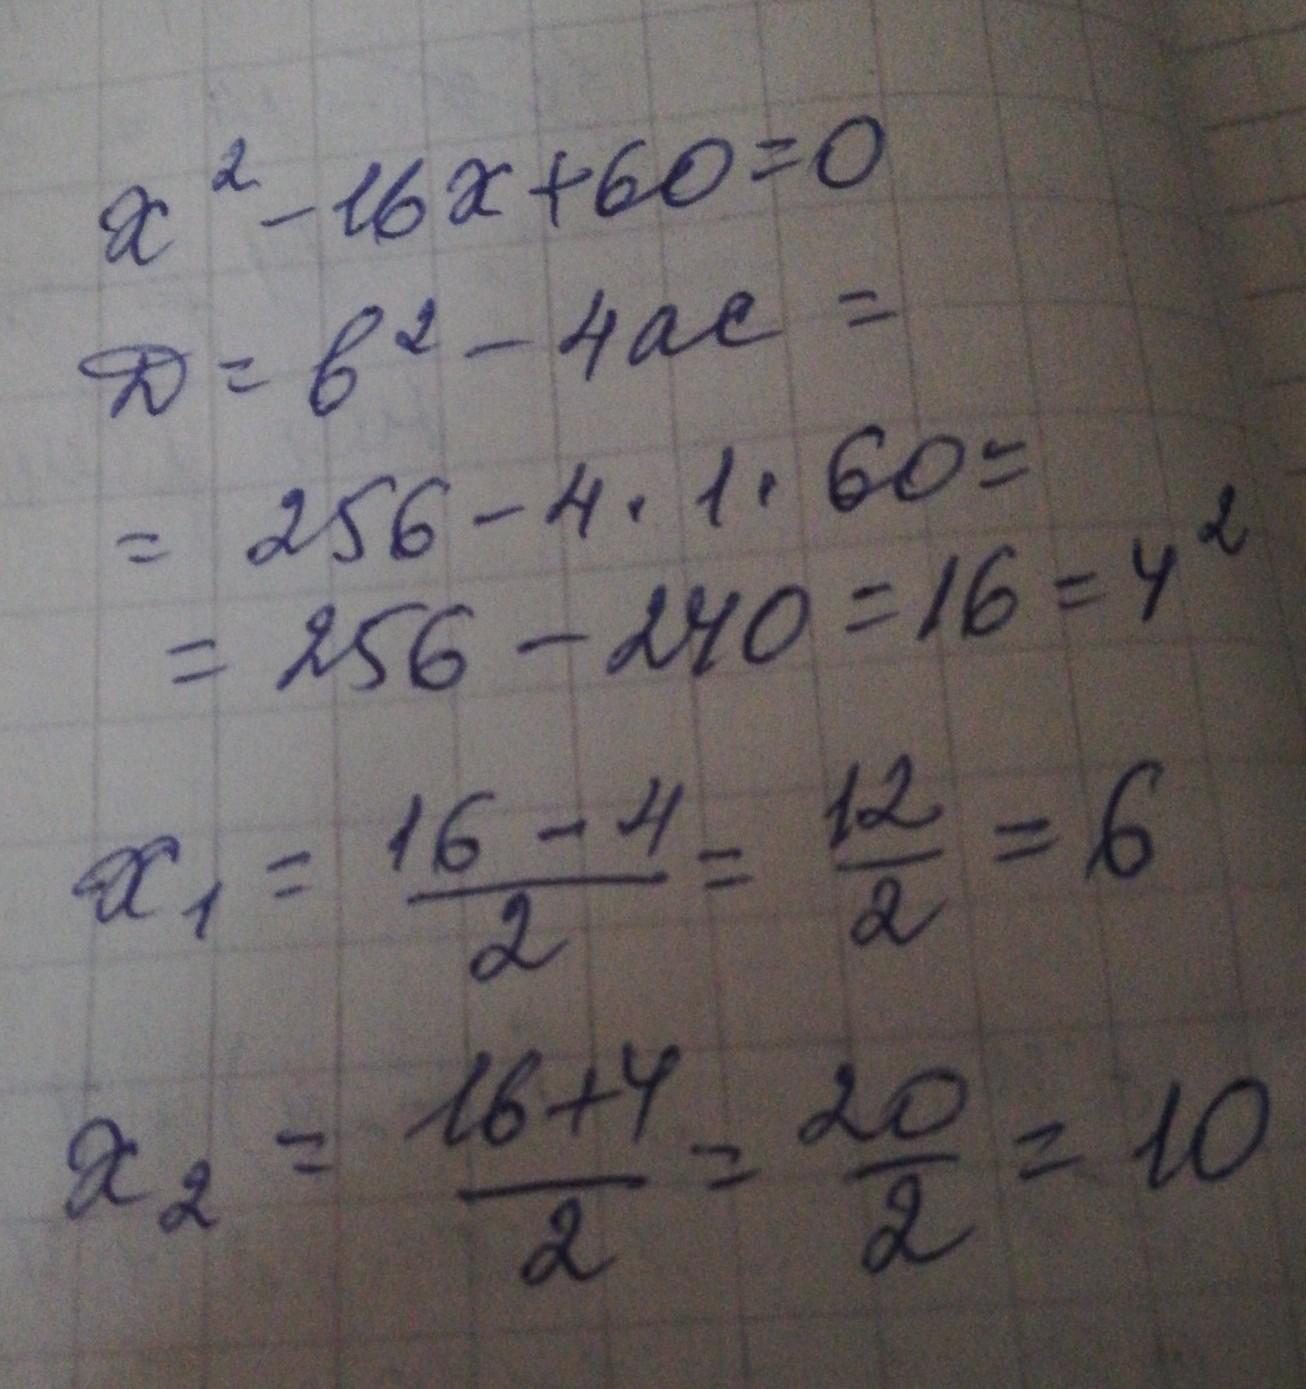 x² - 16x + 60 = 0
D = b² - 4ac =
= 256 - 4 · 1 · 60 =
= 256 - 240 = 16 = 4²
x₁ = (16 - 4)/2 = 12/2 = 6
x₂ = (16 + 4)/2 = 20/2 = 10